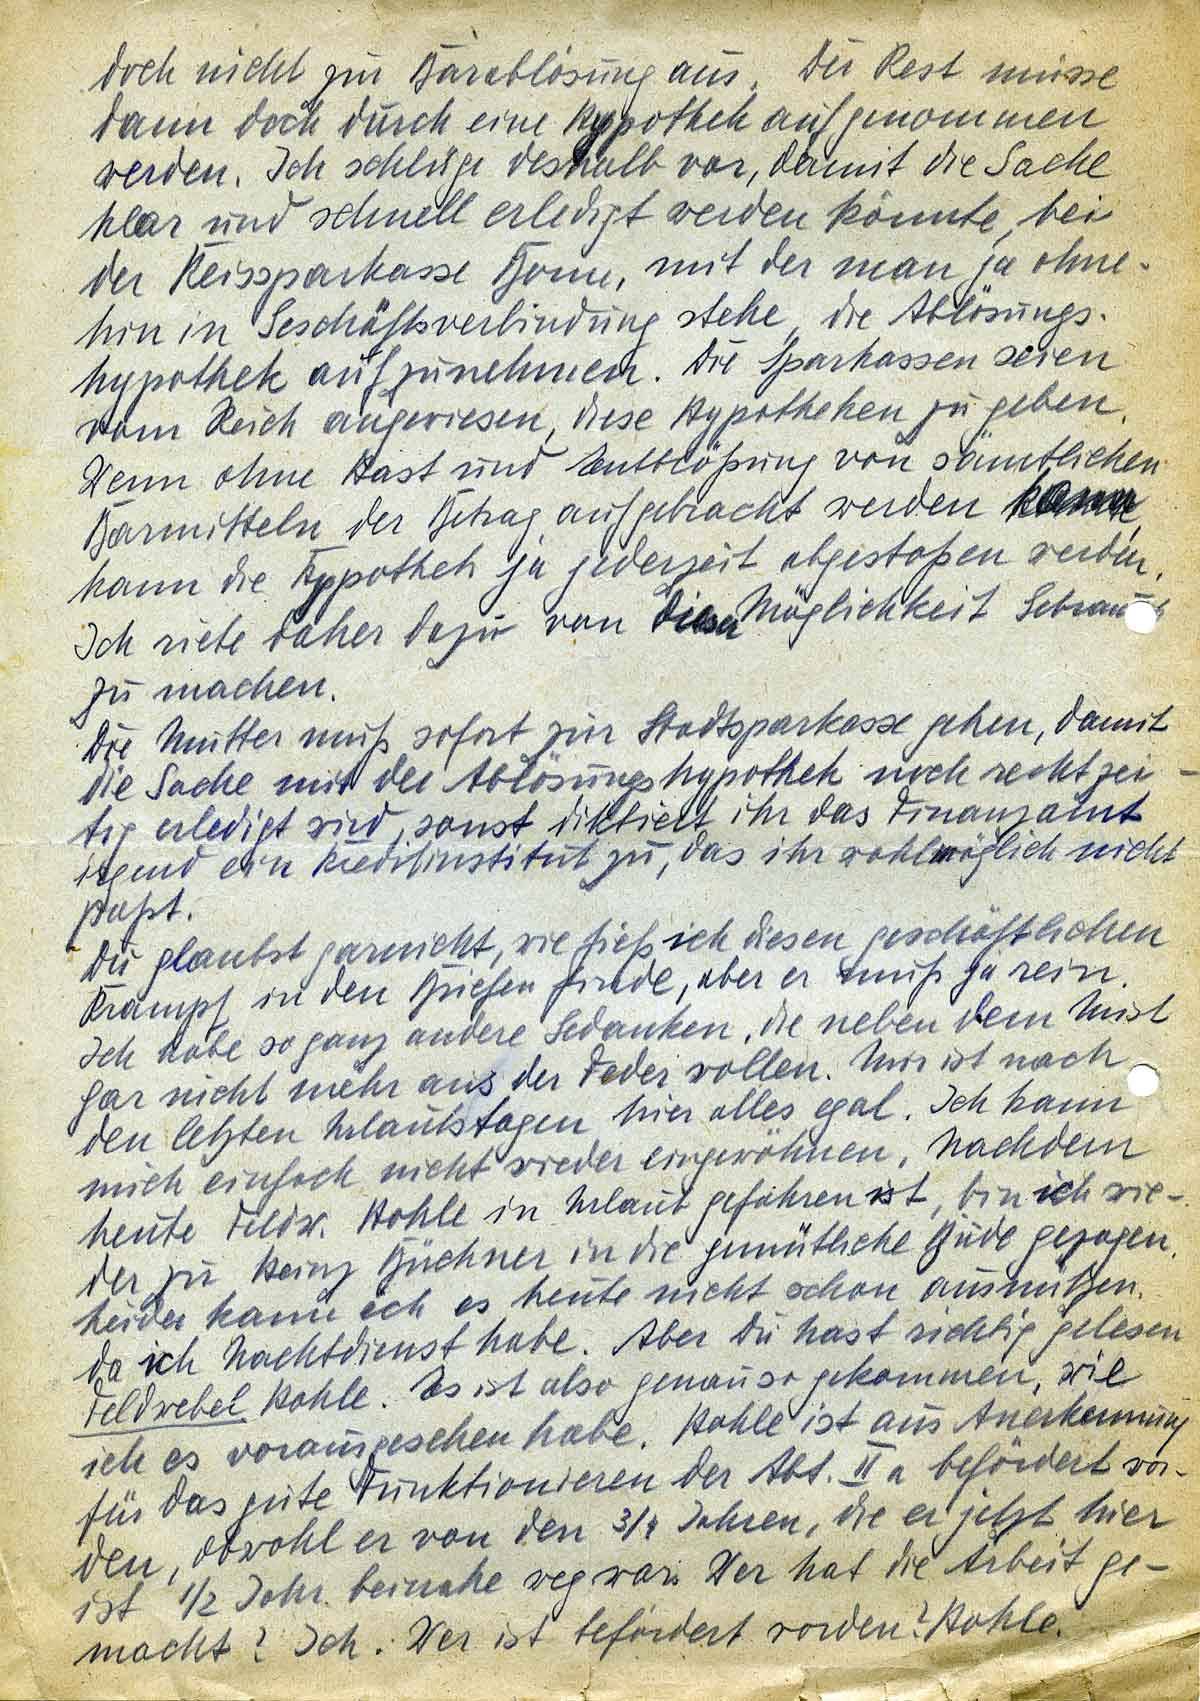 doch nicht zur Barablösung aus. Der Rest müsse
dann doch durch eine Hypothek aufgenommen
werden. Ich schlüge deshalb vor, damit die Sache
klar und schnell erledigt werden könnte, bei
der Kreissparkasse Borna, mit der man ja ohne-
hin in Geschäftsverbindung stehe, die Ablösungs-
hypothek aufzunehmen. Die Sparkassen seien
vom Reich angewiesen, diese Hypotheken zu geben.
Wenn ohne Hast und Entblößung von sämtlichen
Barmitteln der Betrag aufgebracht werden kann,
kann die Hypothek ja jederzeit abgestoßen werden.
Ich riete daher dazu von dieser Möglichkeit Gebrauch
zu machen.
Die Mutter muß sofort zur Stadtsparkasse gehen, damit
die Sache mit der Ablösungshypothek noch rechtzei-
tig erledigt wird, sonst diktiert ihr das Finanzamt
irgend ein Kreditinstitut zu, das ihr wohlmöglich nicht
paßt.
Du glaubst garnicht, wie fieß ich diesen geschäftlichen
Krampf in den Briefen finde, aber er muß ja rein.
Ich habe so ganz andere Gedanken, die neben dem Mist
gar nicht mehr aus der Feder wollen. Mir ist nach
den letzten Urlaubstagen hier alles egal. Ich kann
mich einfach nicht wieder eingewöhnen. Nachdem
heute Feldw. Hohle in Urlaub gefahren ist, bin ich wie-
der zu Heinz Büchner in die gemütliche Bude gezogen.
Leider kann ich es heute nicht schon ausnützen,
da ich Nachtdienst habe. Aber Du hast richtig gelesen
Feldwebel Hohle. Es ist also genauso gekommen, wie
ich es vorausgesehen habe. Hohle ist aus Anerkennung
für das gute Funktionieren der Abt. II a befördert wor-
den, obwohl er von den 3/4 Jahren, die er jetzt hier
ist 1/2 Jahr beinahe weg war. Wer hat die Arbeit ge-
macht? Ich. Wer ist befördert worden? Hohle.